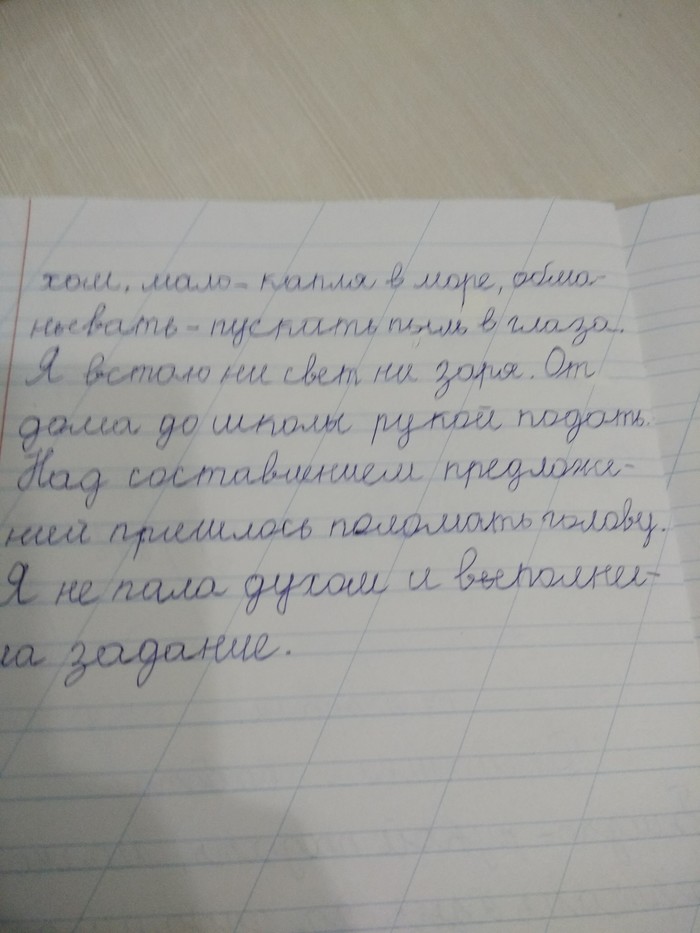 хом, мало - капля в море, обма-
нывать - пускать пыль в глаза.
Я встаю ни свет ни заря. От
дома до школы рукой подать.
Над составлением предложе-
ний пришлось поломать голову.
Я не пала духом и выполни-
ла задание.